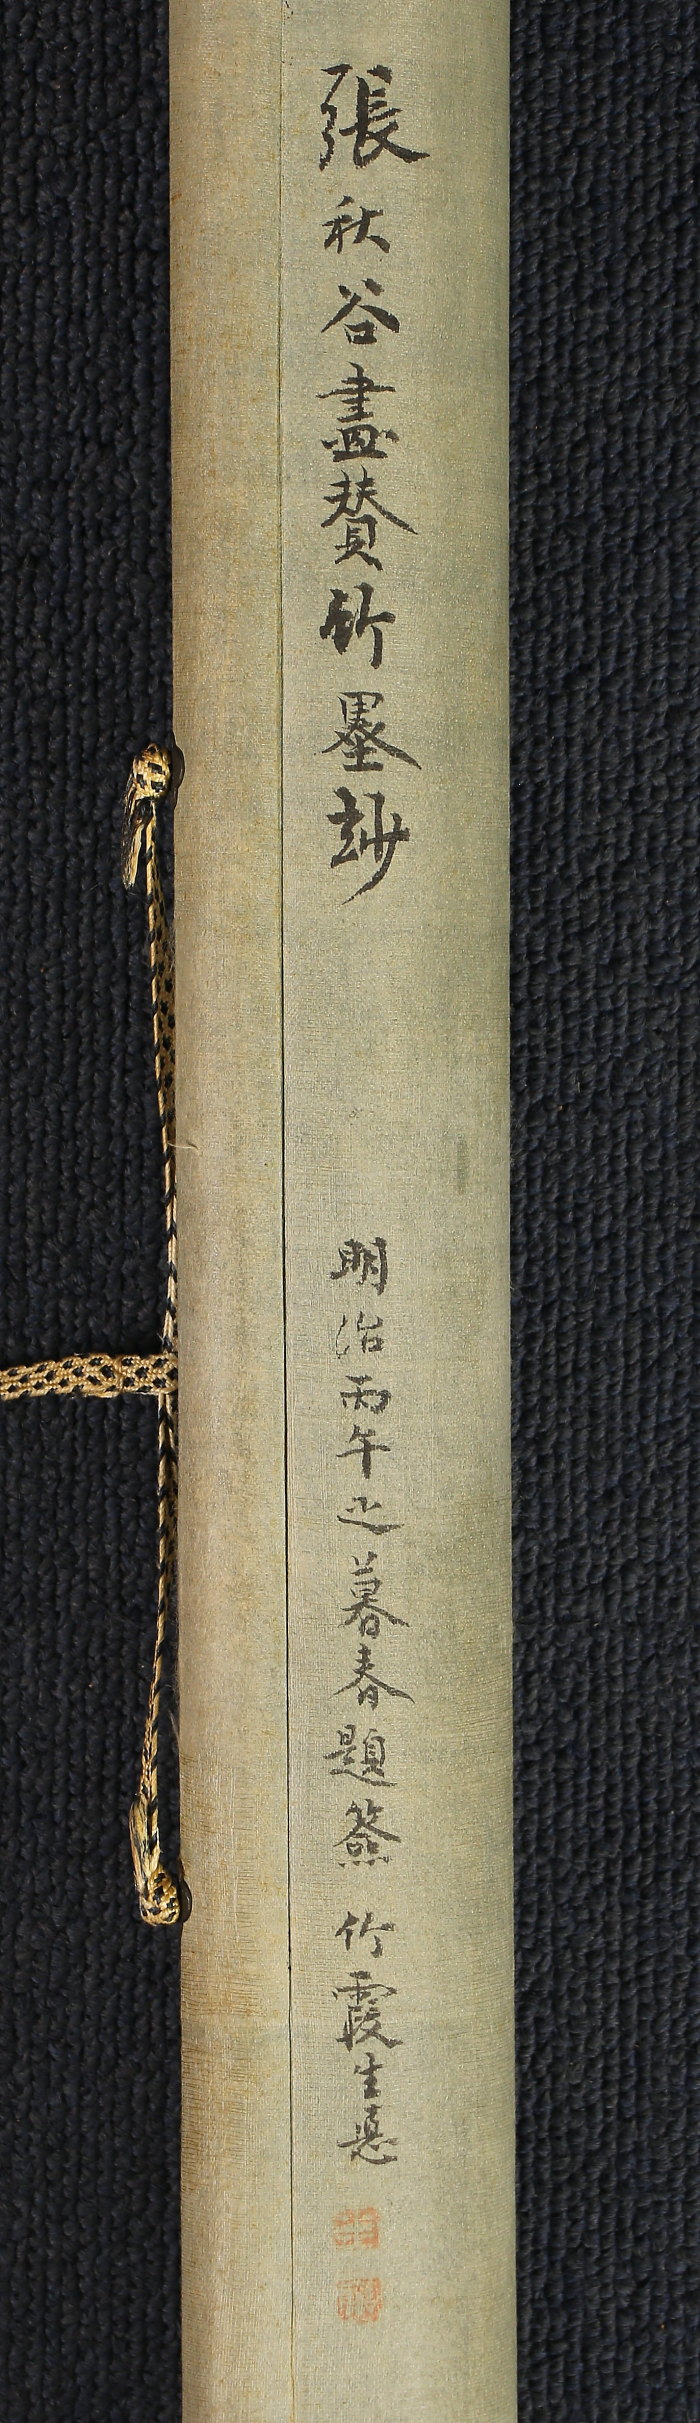 張秋谷畫賛竹墨妙
明治丙午之暮春題簽 竹霞生悳